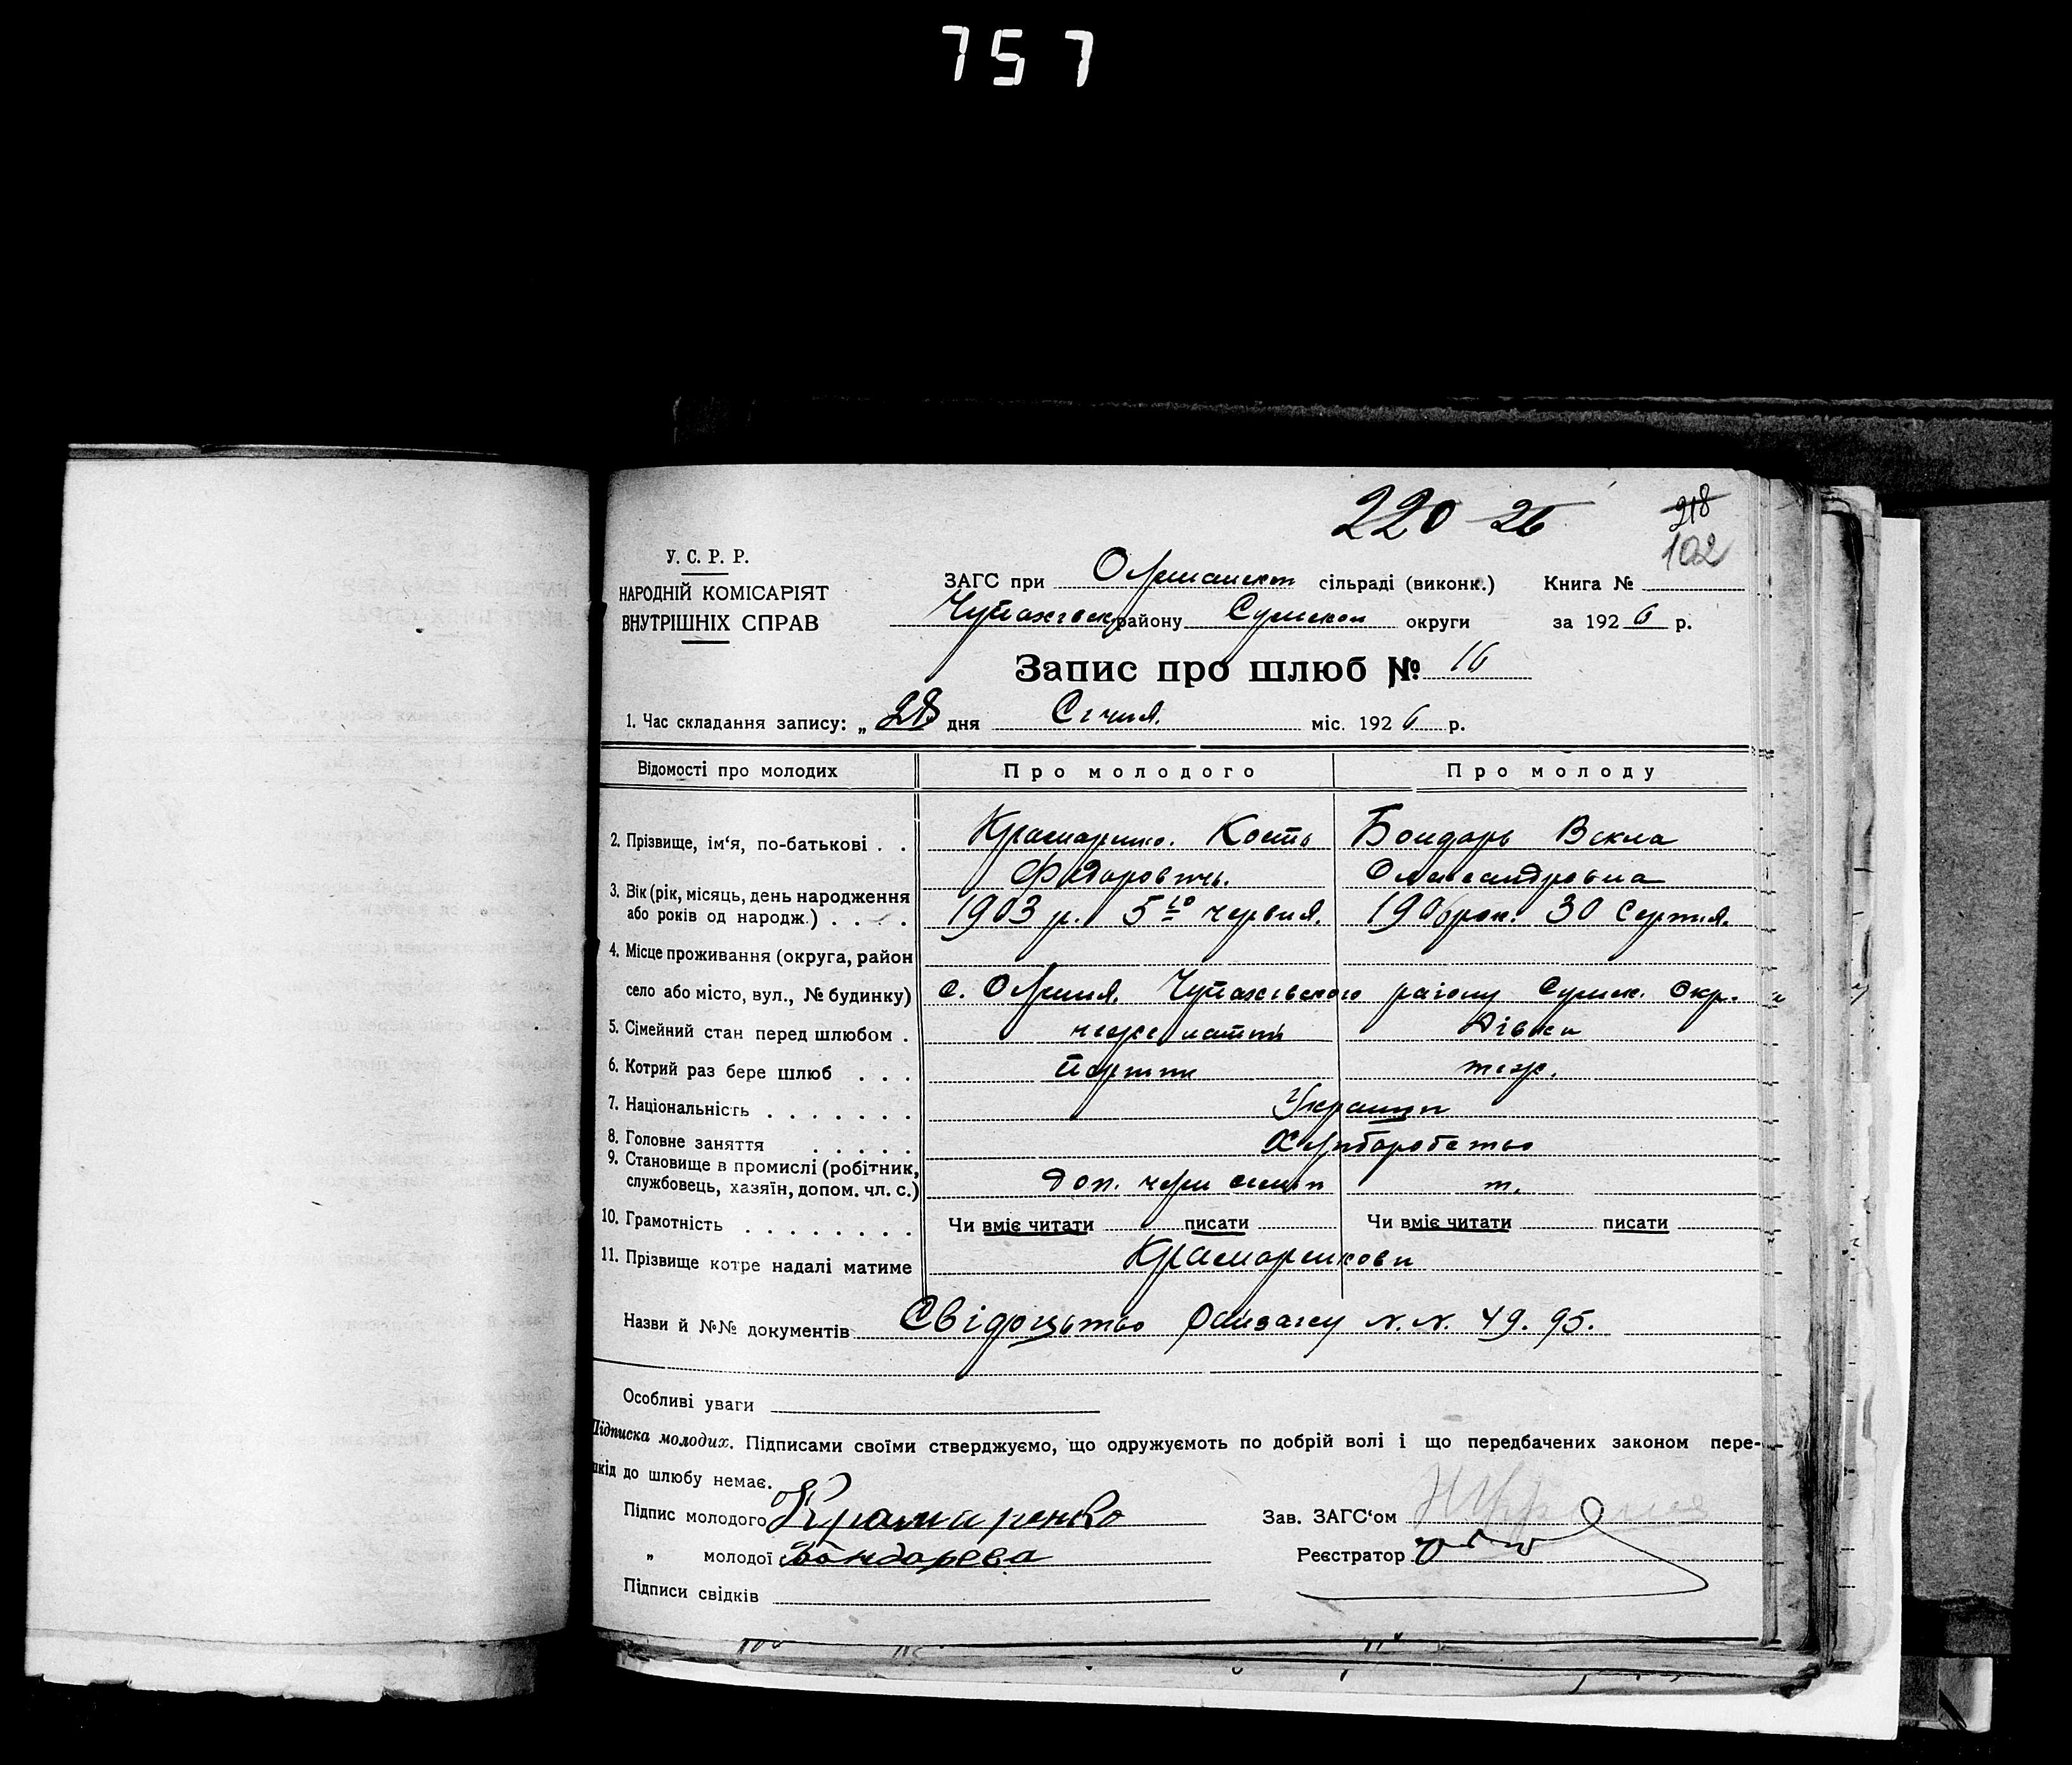 757
220 26
218
102
У. С. Р. Р.
НАРОДНІЙ КОМІСАРІЯТ
ВНУТРІШНІХ СПРАВ
ЗАГС при сільраді (виконк.) Книга №
району Сумской округи за 1926 р.
Запис про шлюб № 16
1. Час складання запису: „ 28 дня Січня. міс. 1926 р.
Відомості про молодих Про молодого Про молоду
2. Прізвище, ім'я, по-батькові . . Крамаренко. Кость Бондарь Векла
Федорович. Олександровна
3. Вік (рік, місяць, день народження
або років од народж.) . . . . 1903 р. 5го червня. 1906 рок. 30 Серпня.
4. Місце проживання (округа, район
село або місто, вул., № будинку) с. Чупахівського району Сумск. Окр.
5. Сімейний стан перед шлюбом . нежонатий Дівка
6. Котрий раз бере шлюб . . . теж.
7. Національність . . . . . . .
8. Головне заняття . . . . . Хліборобство
9. Становище в промислі (робітник,
службовець, хазяїн, допом. чл. с.) Доп. член т.
10. Грамотність . . . . . . . . Чи вміє читати писати Чи вміє читати писати
11. Прізвище котре надалі матиме Крамаренкови
Назви й №№ документів N. N. 49. 95.
Особливі уваги
Підписка молодих. Підписами своїми стверджуємо, що одружуємоть по добрій волі і що передбачених законом пере-
шкід до шлюбу немає.
Підпис молодого Крамаренко Зав. ЗАГС'ом
„ молодої Бондарева Реєстратор
Підписи свідків